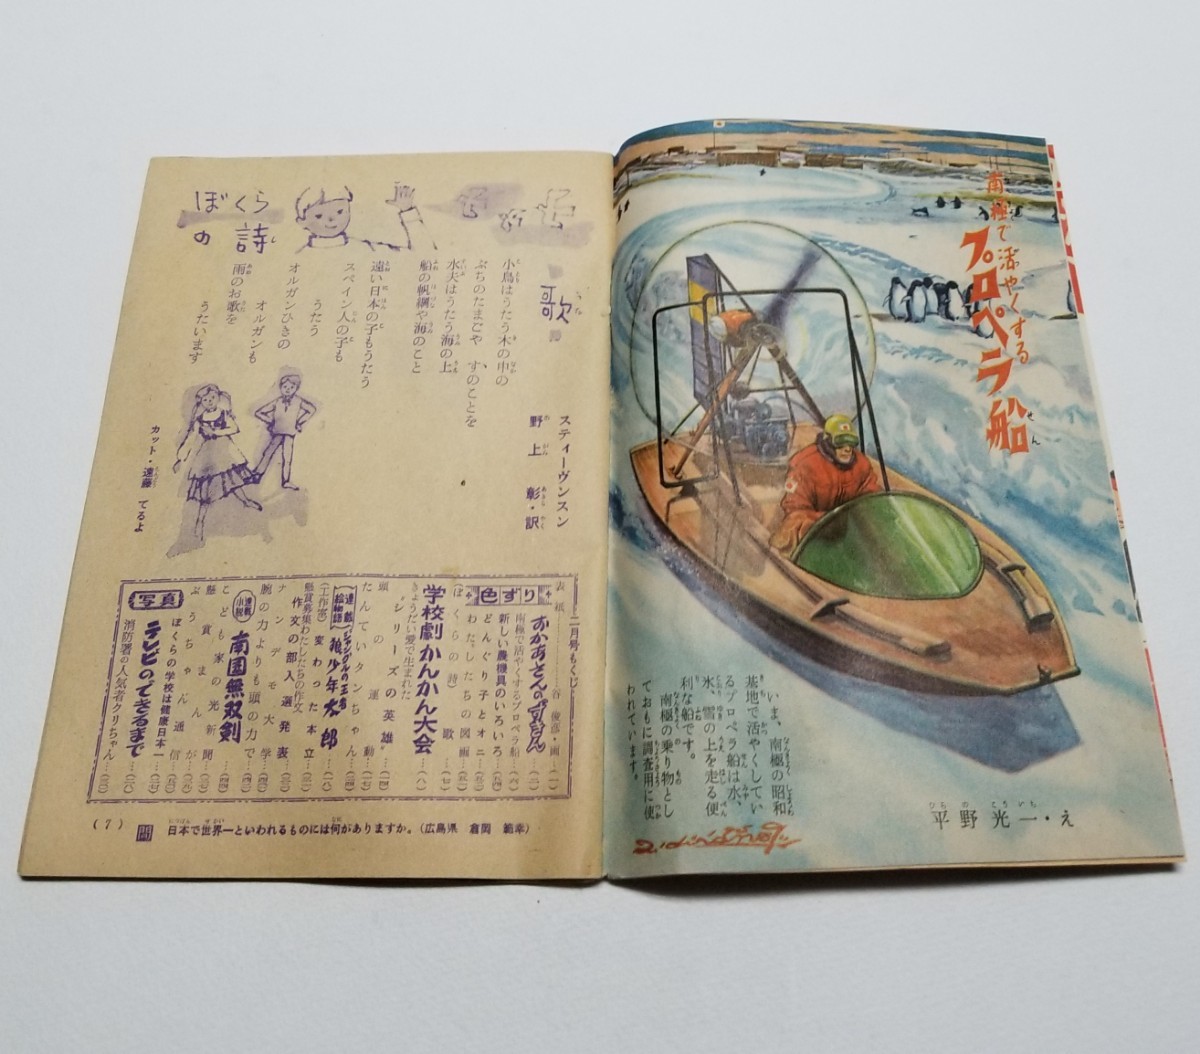 南極で活やくする
プロペラ船
いま、南極の昭和
基地で活やくしてい
るプロペラ船は水、
氷、雪の上を走る便
利な船です。
南極の乗り物とし
ておもに調査用に使
われています。
平野光一・え
ぼくら
の詩
歌
スティーヴンスン
野上 彰・訳
小鳥はうたう木の中の
ぶちのたまごや すのことを
水夫はうたう海の上
船の帆綱や海のこと
遠い日本の子もうたう
スペイン人の子も
うたう
オルガンひきの
オルガンも
雨のお歌を
うたいます
カット・遠藤 てるよ
二月号もくじ
表紙
色ずり
おかあさんの
南極で活やくするプロペラ船
新しい農機具のいろいろ
どんぐり子とオニ
わたしたちの図画
(ぼくらの詩) 歌
学校劇かんかん大会
きょうだい愛で生まれた
"シリーズの英雄"
頭の運動
たんていタンちゃん
連載絵物語 ジャングルの王者 狼少年太郎
(工作室) 変わった本立
懸賞募集わたしたちの作文
作文の部入選発表
ナンデモ大学
腕の力よりも頭の力で
連載小説 南国無双剣
こども家の光新聞
懸賞まんが
ぶうちゃん通信
写真
ぼくらの学校は健康日本一
テレビのできるまで
消防署の人気者クリちゃん
問 日本で世界一といわれるものには何がありますか。(広島県 倉岡
(7)